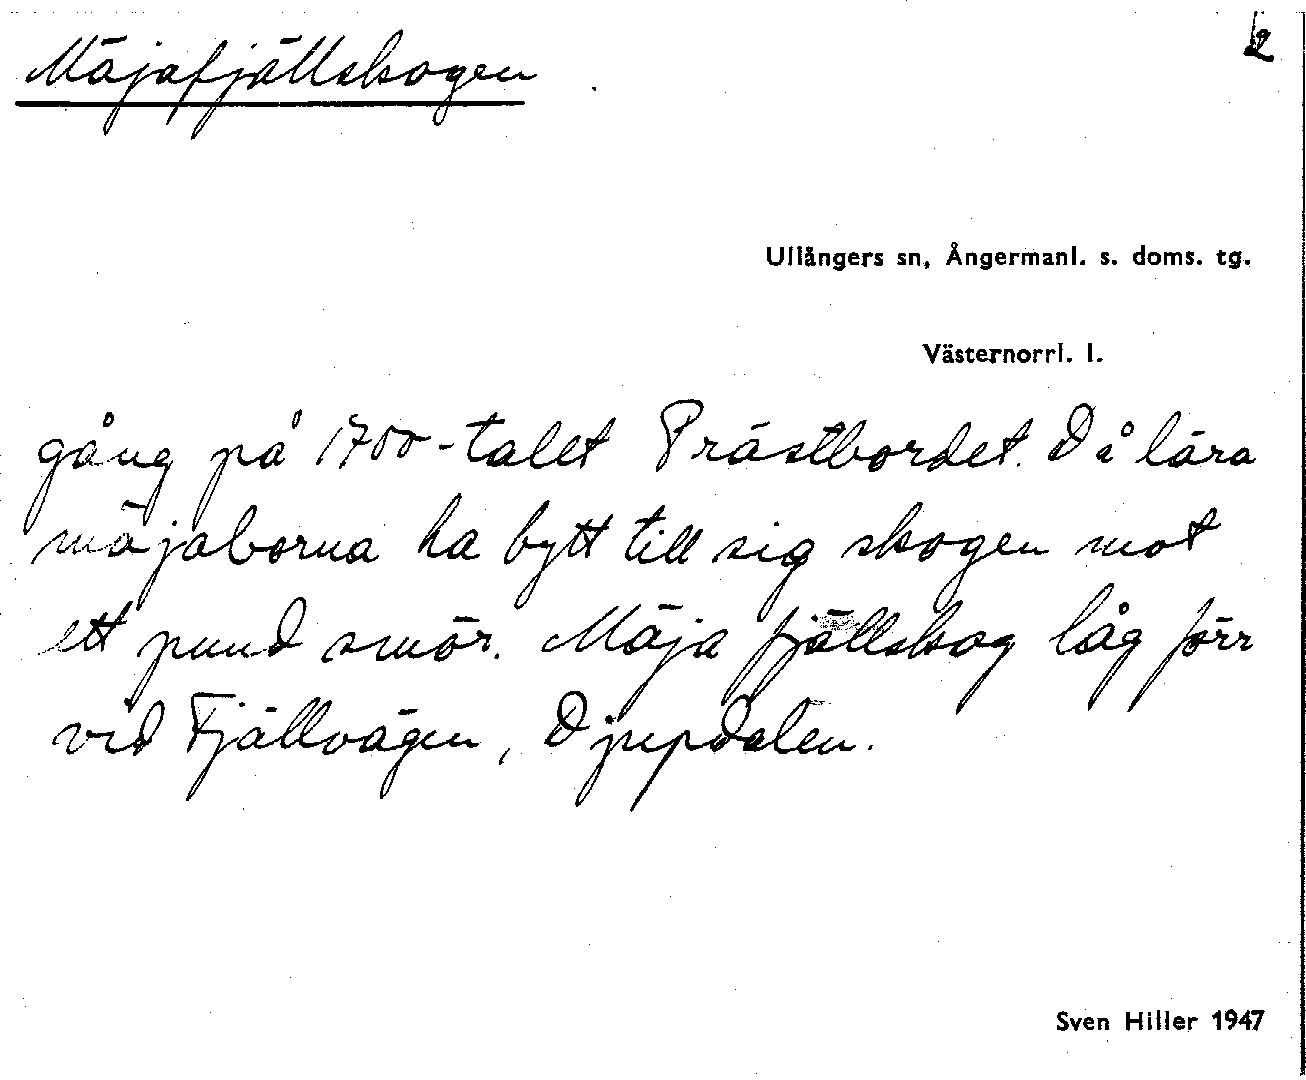 Mäjafjällskogen
2
Ullångers sn, Ångermanl. s. doms. tg.
Västernorrl. l.
gång på 1700-talet Prästbordet. Då lära
mäjaborna ha bytt till sig skogen mot
ett pund smör. Mäja fjällskog låg förr
vid Fjällvägen, Djupdalen.
Sven Hiller 1947